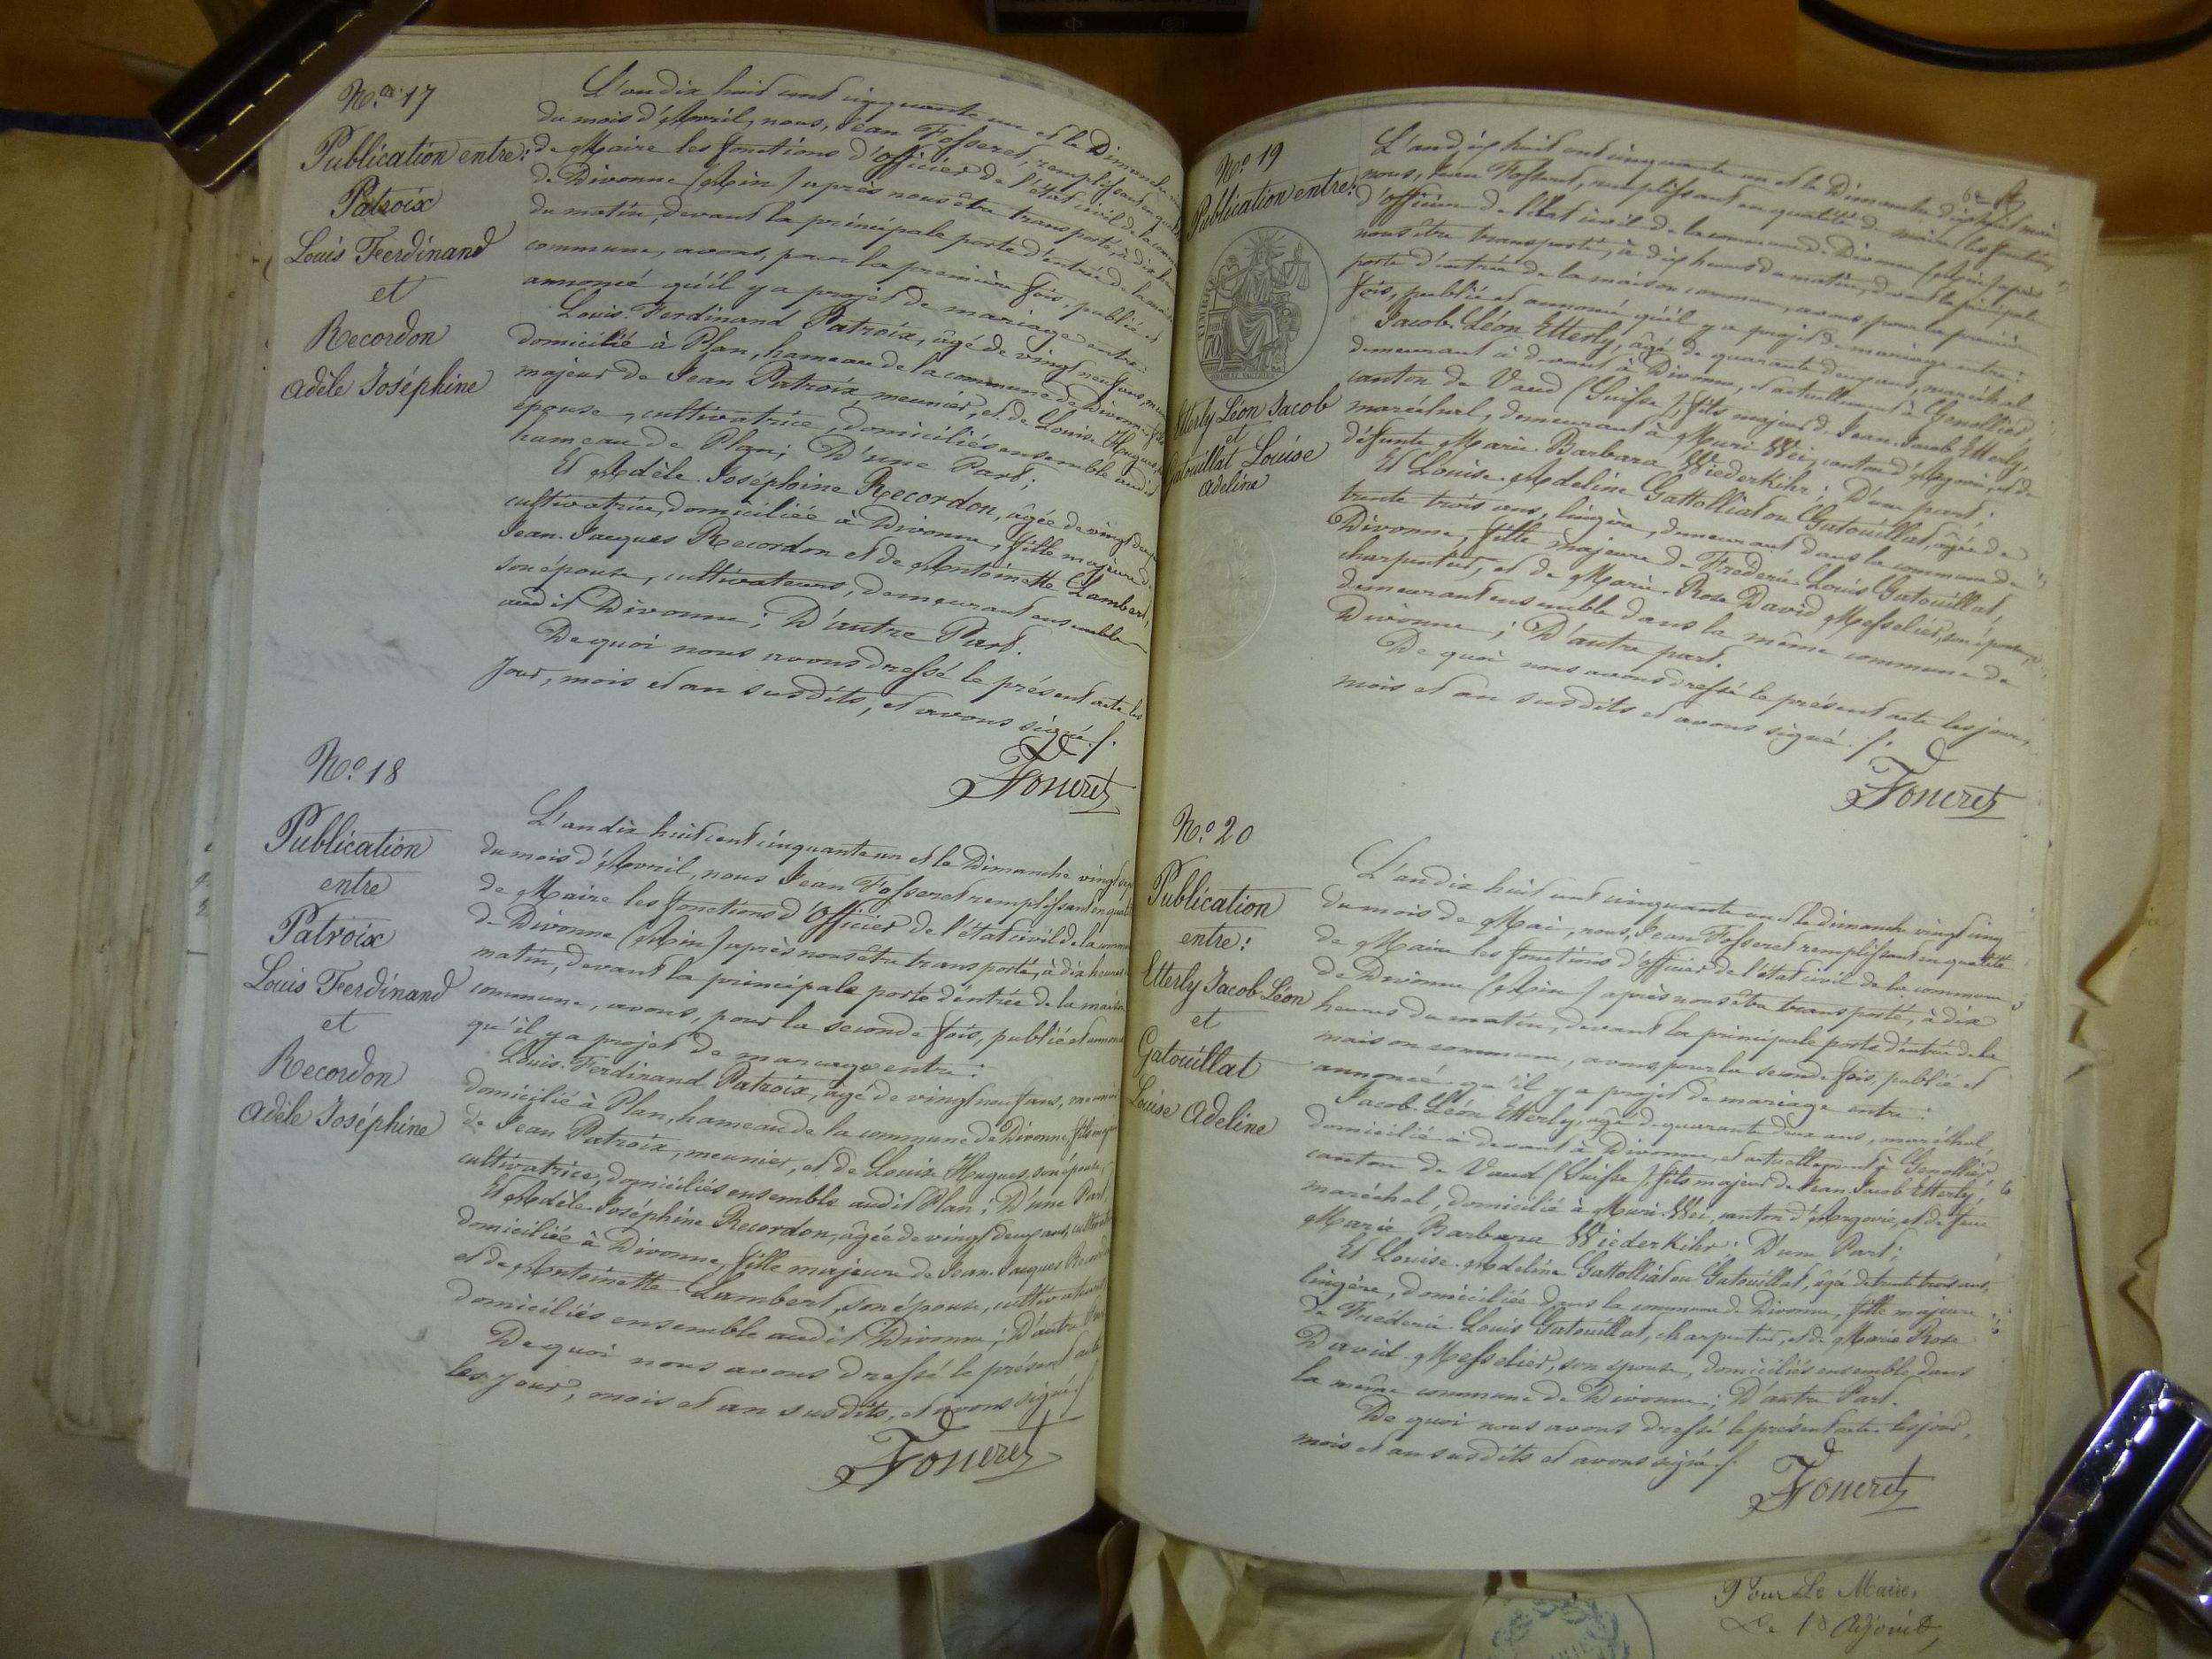 N.º 17
Publication entre:
Patroix
Louis Ferdinand
et
Recordon
Adèle Joséphine
L'an dix huit cent cinquante un et le Dimanche
du mois d'Avril, nous, Jean Fosseret, remplissant en qualité
de Maire les fonctions d'Officier de l'état civil de la commune
de Divonne (Ain) après nous être transporté, à dix heures
du matin, devant la principale porte d'entrée de la maison
commune, avons, pour la première fois, publié et
annoncé qu'il y a projet de mariage entre:
Louis-Ferdinand Patroix, âgé de vingt neuf ans,
domicilié à Plan, hameau de la commune de Divonne, fils
majeur de Jean Patroix, meunier, et de Louise Hugues,
épouse, cultivatrice, domiciliés ensemble audit
hameau de Plan; D'une Part;
Et Adèle-Joséphine Recordon, âgée de vingt deux
cultivatrice, domiciliée à Divonne, fille majeure de
Jean-Jacques Recordon et de Antoinette Lambert,
son épouse, cultivateurs, demeurant ensemble
audit Divonne; D'autre Part.
De quoi nous avons dressé le présent acte les
jour, mois et an susdits, et avons signé./.
Fosseret
N.º 18
Publication
entre
Patroix
Louis Ferdinand
et
Recordon
Adèle Joséphine
L'an dix huit cent cinquante un et le Dimanche vingt sept
du mois d'Avril, nous Jean Fosseret remplissant en qualité
de Maire les fonctions d'Officier de l'état civil de la commune
de Divonne (Ain) après nous être transporté, à dix heures
matin, devant la principale porte d'entrée de la maison
commune, avons, pour la seconde fois, publié et annoncé
qu'il y a projet de mariage entre:
Louis-Ferdinand Patroix, âgé de vingt neuf ans, meunier
domicilié à Plan, hameau de la commune de Divonne, fils majeur
de Jean Patroix, meunier, et de Louise Hugues, son épouse,
cultivatrice, domiciliés ensemble audit Plan; D'une Part
Et Adèle-Joséphine Recordon, âgée de vingt deux ans, cultivatrice
domiciliée à Divonne, fille majeure de Jean-Jacques Recordon
et de Antoinette Lambert, son épouse, cultivateurs
domiciliés ensemble audit Divonne; D'autre Part
De quoi nous avons dressé le présent acte
les jour, mois et an susdits, et avons signé./.
Fosseret
N.º 19
Publication entre:
Etterly Léon Jacob
et
Gatouillat Louise
Adeline
L'an dix huit cent cinquante un et le Dimanche dix huit mai
nous, Jean Fosseret, remplissant en qualité de maire les fonctions
d'officier de l'état civil de la commune de Divonne (Ain) après
nous être transporté, à dix heures du matin, devant la principale
porte d'entrée de la maison commune, avons pour la première
fois, publié et annoncé qu'il y a projet de mariage entre:
Jacob-Léon Etterly, âgé de quarante deux ans, maréchal
demeurant ci devant à Divonne, et actuellement à Genollier,
canton de Vaud (Suisse), fils majeur de Jean-Jacob Etterly,
maréchal, demeurant à Muri-Wei, canton d'Argovie, et de
défunte Marie-Barbara Wiederkihr; D'une part;
Et Louise-Adeline Gattolliat ou Gatouillat, âgée de
trente trois ans, lingère, demeurant dans la commune de
Divonne, fille majeure de Frédéric-Louis Gatouillat,
charpentier, et de Marie-Rose David Messelier, son épouse,
demeurant ensemble dans la même commune de
Divonne; D'autre part.
De quoi nous avons dressé le présent acte les jour,
mois et an susdits et avons signé./.
Fosseret
N.º 20
Publication
entre:
Etterly Jacob Léon
et
Gatouillat
Louise Adeline
L'an dix huit cent cinquante un et le dimanche vingt cinq
du mois de Mai, nous, Jean Fosseret remplissant en qualité
de Maire les fonctions d'officier de l'état civil de la commune
de Divonne (Ain) après nous être transporté, à dix
heures du matin, devant la principale porte d'entrée de la
maison commune, avons pour la seconde fois, publié et
annoncé qu'il y a projet de mariage entre:
Jacob-Léon Etterly, âgé de quarante deux ans, maréchal,
domicilié ci devant à Divonne, et actuellement à Genollier,
canton de Vaud (Suisse), fils majeur de Jean-Jacob Etterly,
maréchal, domicilié à Muri-Wei, canton d'Argovie, et de feue
Marie Barbara Wiederkihr; D'une Part;
Et Louise-Adeline Gattolliat ou Gatouillat, âgée de trente trois ans,
lingère, domiciliée dans la commune de Divonne, fille majeure
de Frédéric-Louis Gatouillat, charpentier, et de Marie Rose
David-Messelier, son épouse, domiciliés ensemble dans
la même commune de Divonne; D'autre Part.
De quoi nous avons dressé le présent acte les jour,
mois et an susdits et avons signé./.
Fosseret
Pour Le Maire,
Le 1er Adjoint,